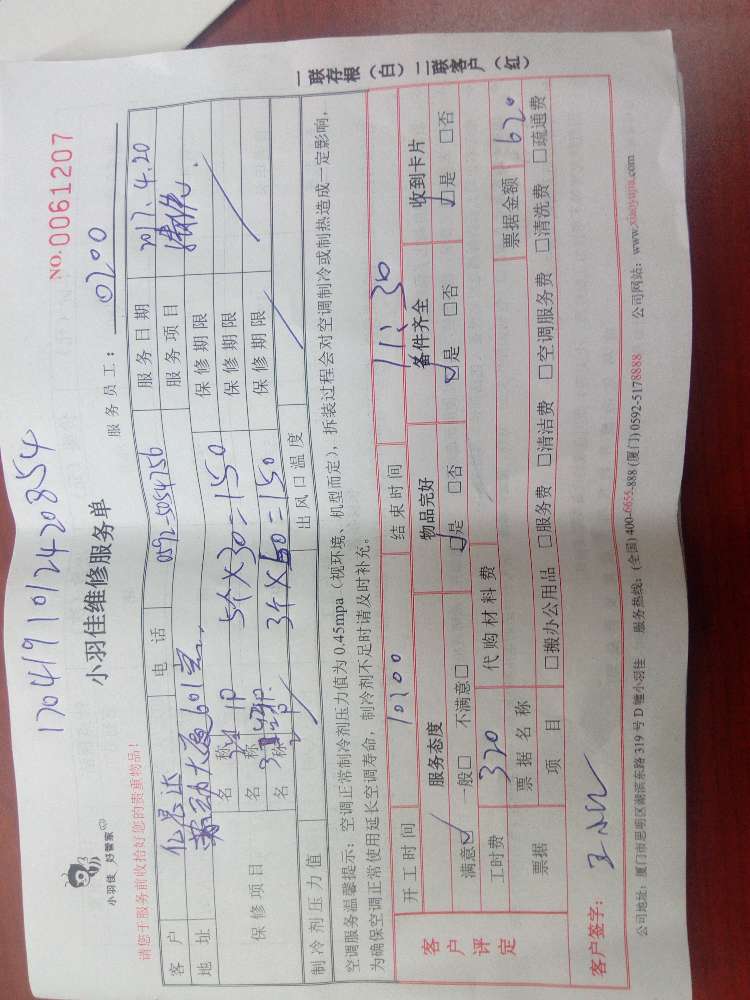 一联存根（白）二联客户（红）
170419101242085 4
NO.0061207
小羽佳 好管家
小羽佳维修服务单
服务员工： 0200
请您于服务前收拾好您的贵重物品！
客户 电话 0592-5054256 服务日期 2017.4.20
地址 劳动大厦601室 服务项目
名称 1P 5个X30=150 保修期限
保修项目 名称 保修期限
名称 3个X50=150 保修期限
制冷剂压力值 出风口温度
空调服务温馨提示：空调正常制冷剂压力值为 0.45mpa（视环境、机型而定），拆装过程会对空调制冷或制热造成一定影响，
为确保空调正常使用延长空调寿命，制冷剂不足时请及时补充。
开工时间 10:00 结束时间 11:30
客户评定 服务态度 物品完好 备件齐全 收到卡片
满意☑ 一般□ 不满意□ ☑是 □否 ☑是 □否 ☑是 □否
工时费 320 代购材料费
票据 票据名称 票据金额 620
项目 □搬办公用品 □服务费 □清洁费 □空调服务费 □清洗费 □疏通费
客户签字：
公司地址：厦门市思明区湖滨东路 319 号 D 幢小羽佳 服务热线：(全国) 400-6655-888 (厦门) 0592-5178888 公司网站：www.xiaoyujia.com